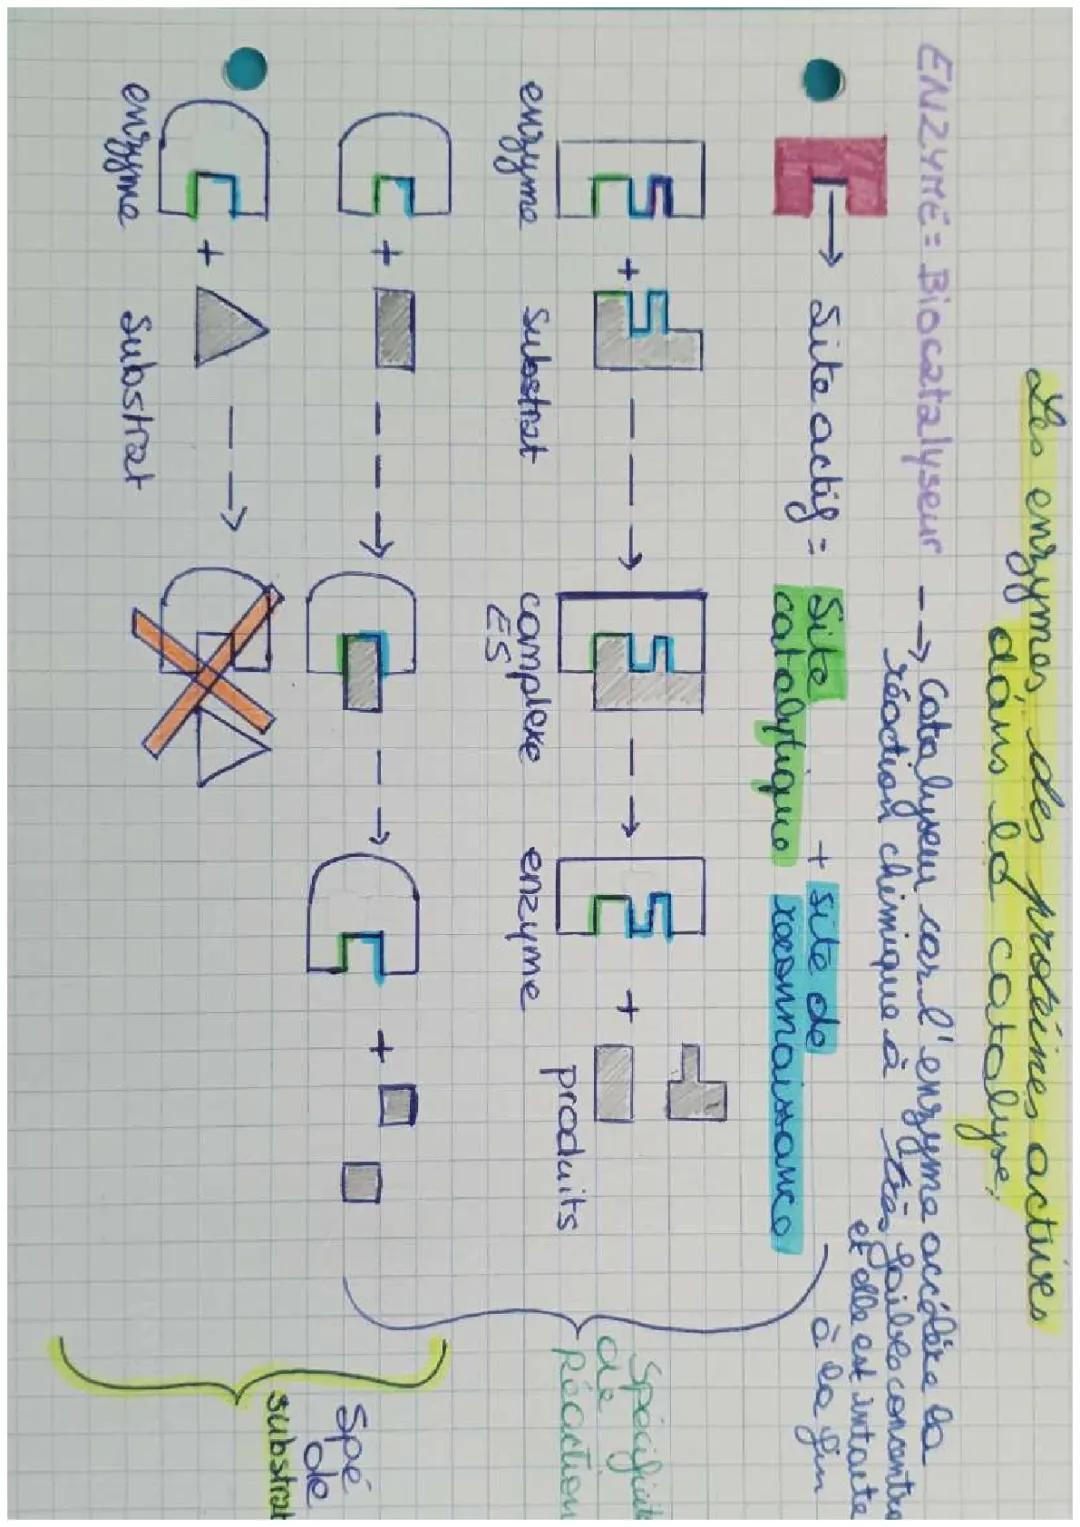 Les enzymes, des protéines actives
dans la catalyse.
ENZYME = Biocatalyseur --> catalyseur car l'enzyme accélère la
réaction chimique à très faibles concentra
et elle est intacte
à la fin
→ Site actif = Site catalytique + site de reconnaissance
enzyme + Substrat complexe ES enzyme + produits
+ +
enzyme + Substrat
Spécificité
de
Réaction
Spé
de
substrat